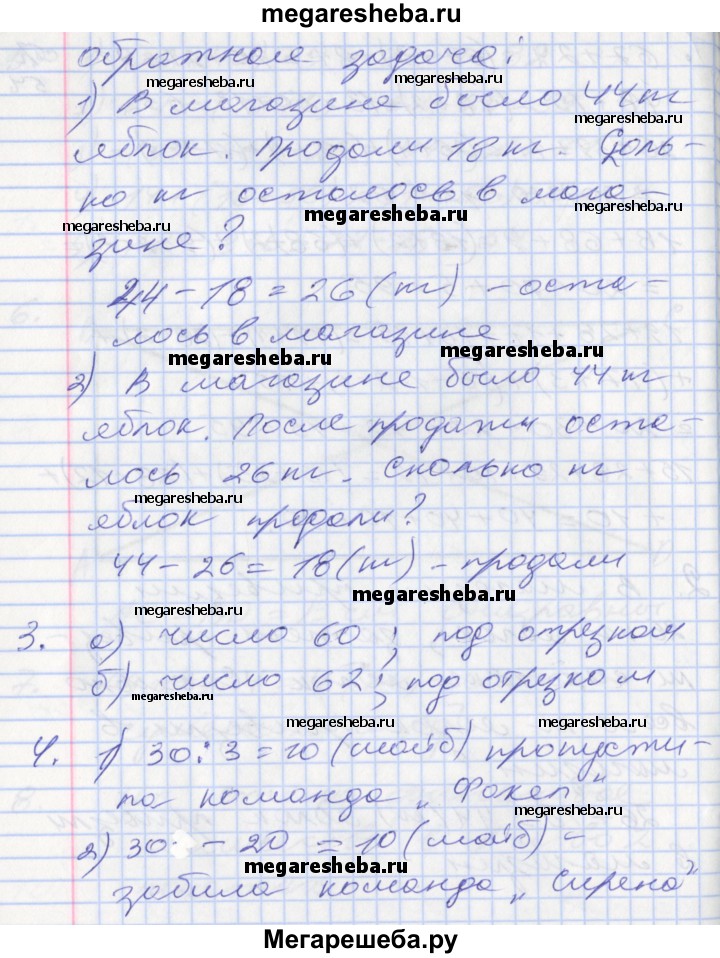 megaresheba.ru
обратная задача:
megaresheba.ru megaresheba.ru
1) В магазине было 44 кг
megaresheba.ru
яблок. Продали 18 кг. Сколь-
ко кг осталось в мага-
megaresheba.ru megaresheba.ru megaresheba.ru
зине?
44 - 18 = 26 (кг) - оста-
лось в магазине
megaresheba.ru megaresheba.ru
2) В магазине было 44 кг
яблок. После продажи оста-
лось 26 кг. Сколько кг
megaresheba.ru megaresheba.ru
яблок продали?
44 - 26 = 18 (кг) - продали
megaresheba.ru
megaresheba.ru
3. а) число 60; под отрезком
б) число 62; под отрезком
megaresheba.ru
megaresheba.ru megaresheba.ru
4. 1) 30 : 3 = 10 (шайб) пропусти-
ла команда „Факел"
megaresheba.ru
2) 30 - 20 = 10 (шайб) -
megaresheba.ru
забила команда „Сирена"
Мегарешеба.ру